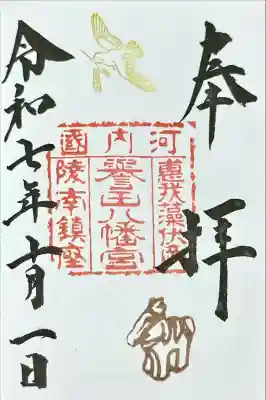 奉拝
河内國
惠我藻伏岡
譽田八幡宮
陵南鎮座
令和七年十月一日